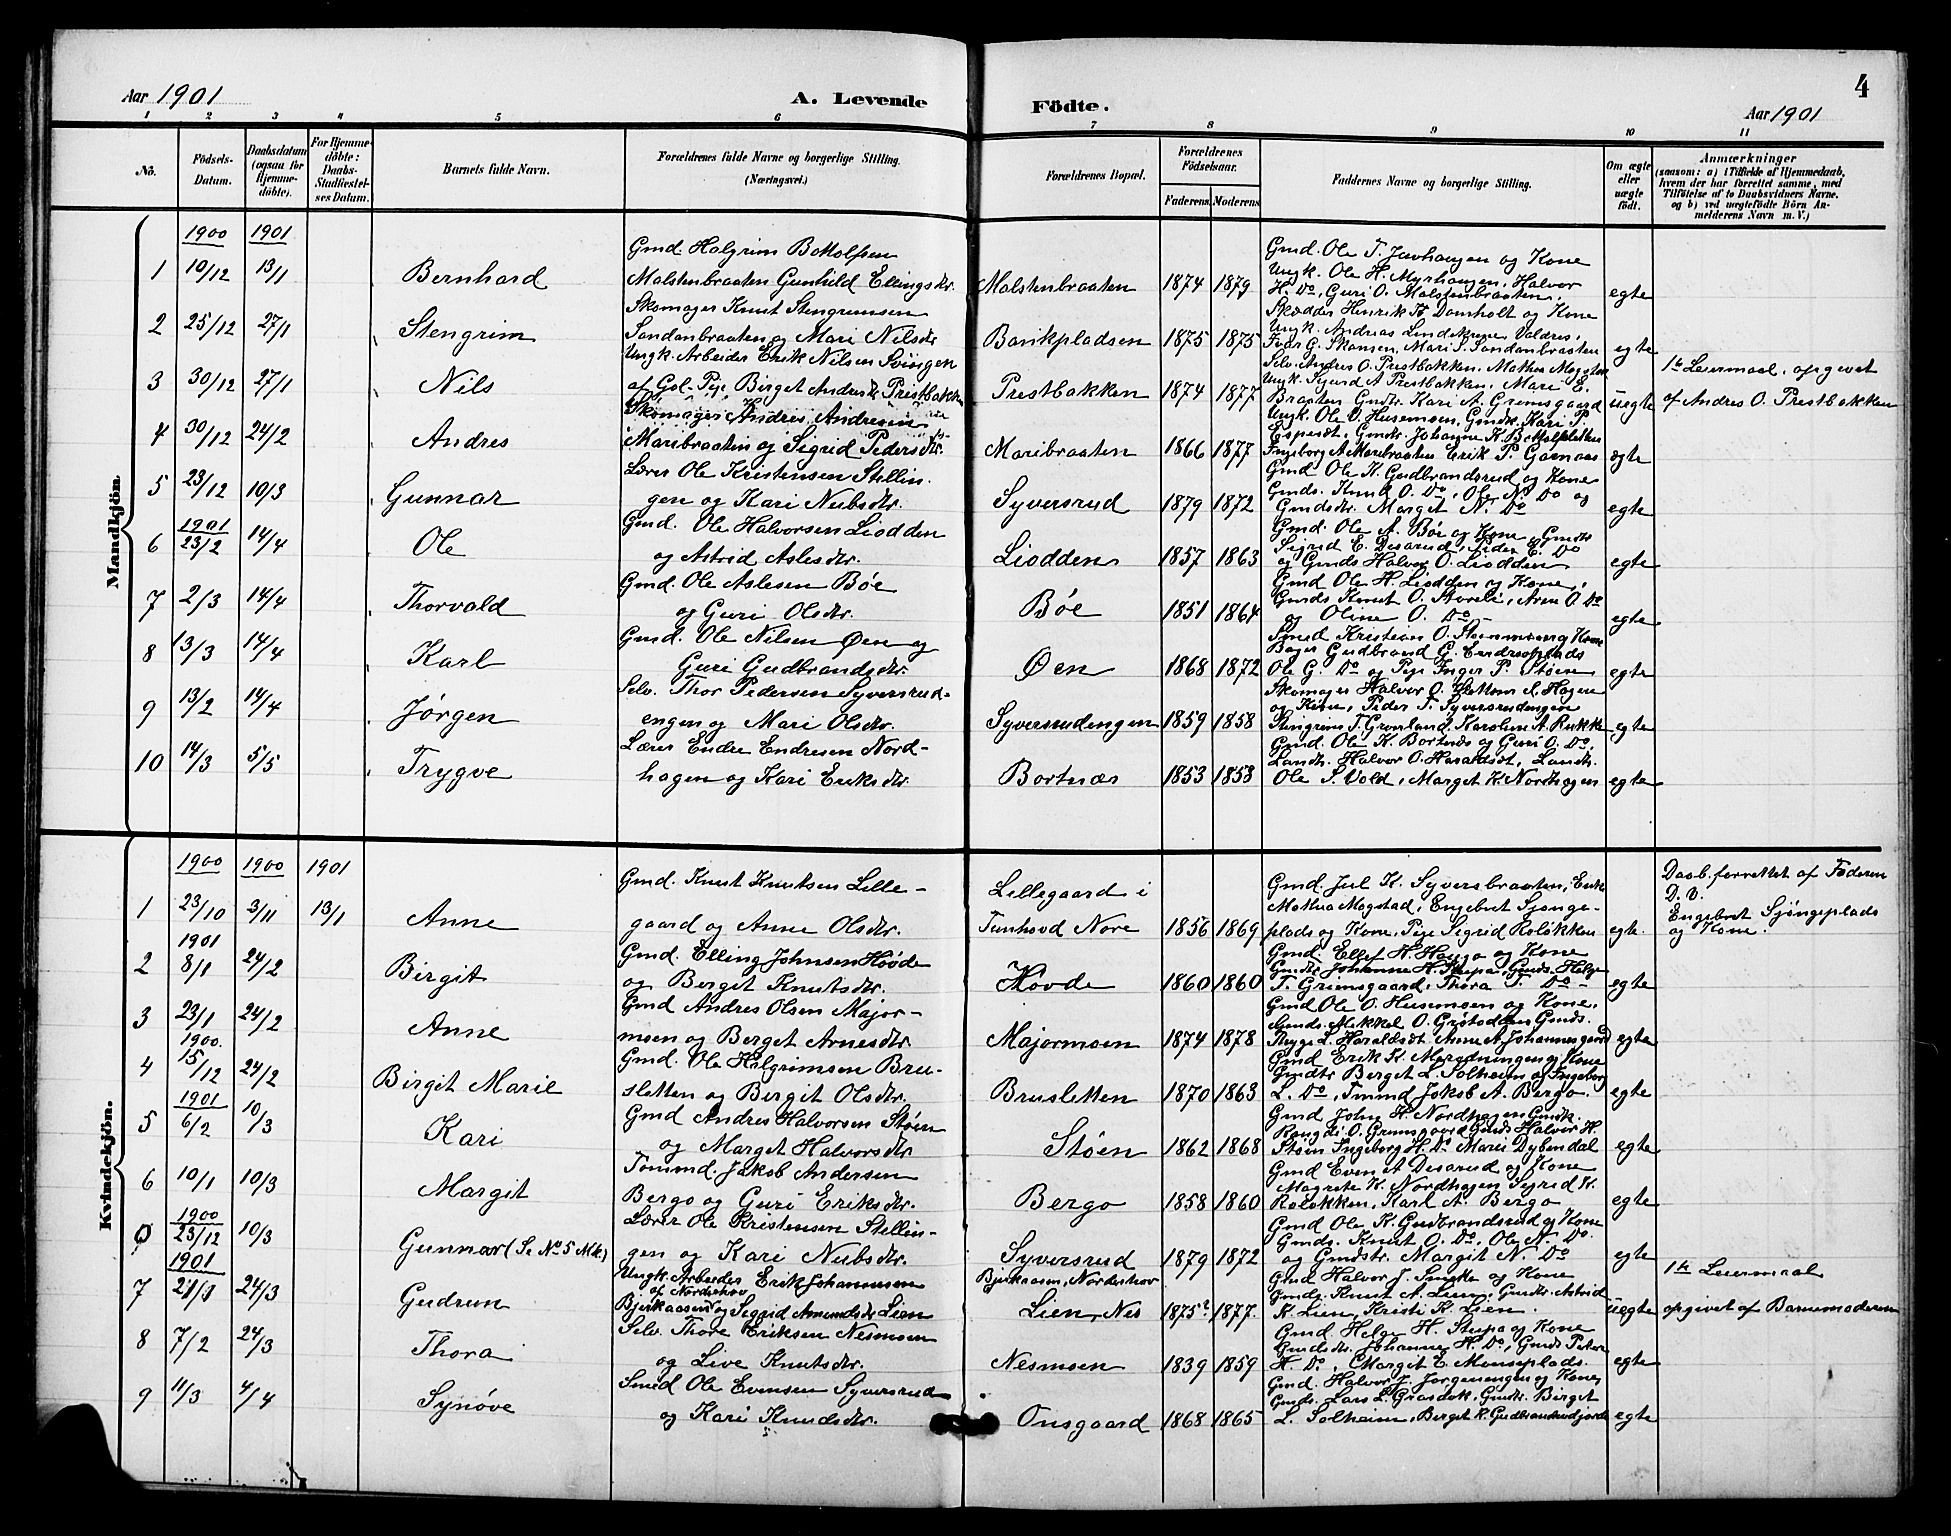 4
Aar 1901
A. Levende
Födte.
Aar 1901
1 2 3 4 5 6 7 8 9 10 11
No.
Födsels-Datum.
Daabsdatum (ogsaa for Hjemmedöbte).
For Hjemmedöbte: Daabs-Stadfæstelses Datum.
Barnets fulde Navn.
Forældrenes fulde Navne og borgerlige Stilling. (Næringsvei.)
Forældrenes Bopæl.
Forældrenes Födselsaar.
Faderens. Moderens.
Faddernes Navne og borgerlige Stilling.
Om ægte eller uægte födt.
Anmærkninger
(saasom: a) i Tilfælde af Hjemmedaab, hvem der har forrettet samme, med Tilföielse af to Daabsvidners Navne, og b) ved uægtefödte Börn Anmelderens Navn m. V.)
Mandkjön.
1900 1901
1 10/12 13/1 Bernhard
Gmd. Halgrim Bottolfsen
Malstenbraaten Gunhild Ellingsdtr.
Malstenbraaten 1874 1879
Gmd. Ole T. Juvhaugen og Kone
Ungk. Ole H. Myrhaugen, Halvor
H. Do, Guri O. Malstenbraaten.
egte
2 25/12 27/1 Stengrim
Skomager Knut Stengrimsen
Sandanbraaten og Mari Nilsdtr
Bankpladsen 1875 1875
Skædder Henrik H. Domholt og Kone
Ungk. Andreas Valdres,
G. Skansen, Mari T. Sandanbraaten
egte
3 30/12 27/1 Nils
Ungk. Arbeider Erik Nilsen Svingen
af Gol. Pige Birget Andresdtr Prestbakken
Prestbakken 1874 1877
Selv. Andres O. Prestbakken, Mathea Mogstad
Ungk. Sjurd A Prestbakken, Mari E.
Braaten Gmdtr. Kari A. Grimsgaard
uegte
1ste Leiermaal, opgivet
af Andres O. Prestbakken
4 30/12 24/2 Andres
Skomager Andres Andresen
Maribraaten og Sigrid Pedersdtr.
Maribraaten 1866 1877
Ungk. Ole O. Husemoen, Gmdtr. Kari P.
Espeset, Gmdtr. Johanne K.
Ingeborg A Maribraaten Erik P. Garnaas
egte
5 23/12 10/3 Gunnar
Lærer Ole Kristensen Stillin-
gen og Kari Nubsdtr.
Syversrud 1879 1872
Gmd. Ole K. Gudbrandsrud og Kone
Gmds. Knud O. Do, Ole N. Do og
Gmdsdtr. Marget N. Do
egte
1901
6 23/2 14/4 Ole
Gmd. Ole Halvorsen Liodden
og Astrid Aslesdtr.
Liodden 1857 1863
Gmd. Ole A. Bøe og Kone, Gmdtr
Sigrid E. Desarud, Peder E. Do
og Gmds Halvor O. Liodden
egte
7 2/3 14/4 Thorvald
Gmd. Ole Aslesen Bøe
og Guri Olsdtr.
Bøe 1851 1864
Gmd Ole H. Liodden og Kone,
Gmds Knut O. Storeli, Arne O. Do
og Oline O. Do
egte
8 13/3 14/4 Karl
Gmd. Ole Nilsen Øen og
Guri Gudbrandsdtr.
Øen 1868 1872
Smed Kristian O. og Kone
Bager Gudbrand G. Endresplads
Ole G. Do og Pige Inger P. Støen
egte
9 13/2 14/4 Jørgen
Selv. Thor Pedersen Syversrud-
engen og Mari Olsdtr.
Syversrudengen 1859 1858
Skomager Halvor O. Hagen
og Kone, Peder T. Syversrudengen
Stengrim T. Grønland, Karoline A. Rukke
egte
10 14/3 5/5 Trygve
Lærer Endre Endresen Nord-
hagen og Kari Eriksdtr.
Bortnæs 1853 1858
Gmd. Ole K. Bortnæs og Guri O. Do.
Landh. Halvor O. Haraldset, Landh.
Ole S. Vold, Marget K. Nordhagen
egte
Kvindekjön.
1900 1900 1901
1 23/10 3/11 13/1 Anne
Gmd. Knut Knutsen Lille-
gaard og Anne Olsdtr.
Lillegaard i
Tunhovd Nore 1856 1869
Gmd. Jul K. Syversbraaten, Enke
Mathea Mogstad, Engebret Sjonge-
plads og Kone, Pige Sigrid Roløkken
egte.
Daab forrettet af Faderen
D. V.
Engebret Sjöngeplads
og Kone.
1901
2 8/1 24/2 Birgit
Gmd. Elling Johnsen Hovde
og Berget Knutsdtr.
Hovde 1860 1860
Gmd. Ellef H. Hauge og Kone
Gmdtr Johanne H. Stupa, Gmds. Helge
T. Grimsgaard, Thora T. Do
egte
3 23/1 24/2 Anne
Gmd Andres Olsen Major-
moen og Berget Arnesdtr.
Majormoen 1874 1878
Gmd Ole O. Husemoen og Kone,
Gmds. Mekkel O. Grøtodden Gmds.
Trygve L. Haraldset, Anne A. Johannesgaard
egte
1900.
4 15/12 24/2 Birgit Marie
Gmd. Ole Halgrimsen Bru-
sletten og Bergit Olsdtr.
Brusletten 1870 1863
Gmd Erik K. og Kone
Gmdtr Berget L. Solheim og Ingeborg
L. Do, Tømmd Jakob A. Bergo
egte
1901
5 6/2 10/3 Kari
Gmd Andres Halvorsen Støen
og Marget Halvorsdtr
Støen 1862 1868
Gmd John K. Nordhagen Gmdtr.
Rangdi O. Grimsgaard Gmds Halvor H.
Støen Ingeborg H. Do Mari Dybendal
egte
6 10/1 10/3 Margit
Tømmd. Jakob Andersen
Bergo og Guri Eriksdtr.
Bergo 1858 1860
Gmd Even A Desarud og Kone
Magrete K. Nordhagen Sigrid K.
Roløkken, Karl A. Bergo
egte
1900
Ø 23/12 10/3 Gunnar (Se No 5 Mk)
Lærer Ole Kristensen Stillin-
gen og Kari Nubsdtr.
Syversrud 1879 1872
Gmd Ole K. Gudbrandsrud og Kone
Gmds. Knut O. Do, Ole N. Do.
og Gmdstr. Margit N. Do
egte
1901
7 21/1 24/3 Gudrun
Ungk. Arbeider Erik Johannesen
af Norderhov
Bjerkaasen og Sigrid Amundsdtr Lien
Bjerkaasen, Norderhov
Lien, Nes 1875? 1877.
Gmd Halvor J. Smette og Kone
Gmds. Knut A. Lien, Gmdtr Astrid
K. Lien, Kristi K. Lien.
uegte
1ste Leiermaal
opgivet af Barnemoderen
8 7/2 24/3 Thora
Selv. Thore Eriksen Nesmoen
og Live Knutsdtr.
Nesmoen 1839 1859
Gmd. Helge H. Stupa og Kone
Gmdsdtr. Johanne H. Do, Gmds Peter
H. Do, Margit E. Monseplads.
egte
9 11/3 4/4 Synøve
Smed Ole Evensen Syversrud
og Kari Knudsdtr.
Onsgaard 1868 1865
Gmd. Halvor J. Jorgensengen og Kone,
Gmds. Lars L. Grasdok, Gmdtr. Birgit
L. Solheim, Berget K. Gudbrandsrudjordet
egte